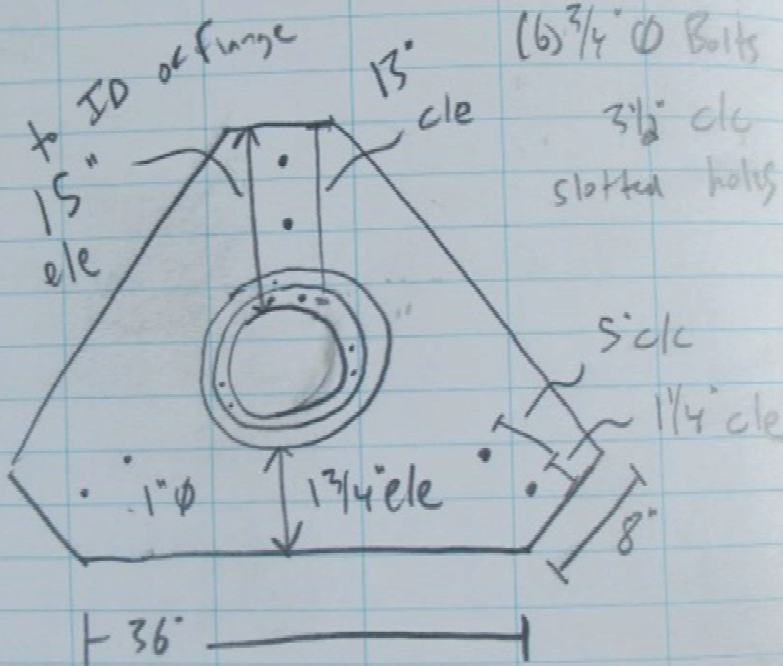 to ID of flange
15"
ele
13"
cle
(6) 3/4" Ø Bolts
3 1/2" c/c
slotted holes
5" c/c
1 1/4" cle
1" Ø
1 3/4" ele
8"
36"